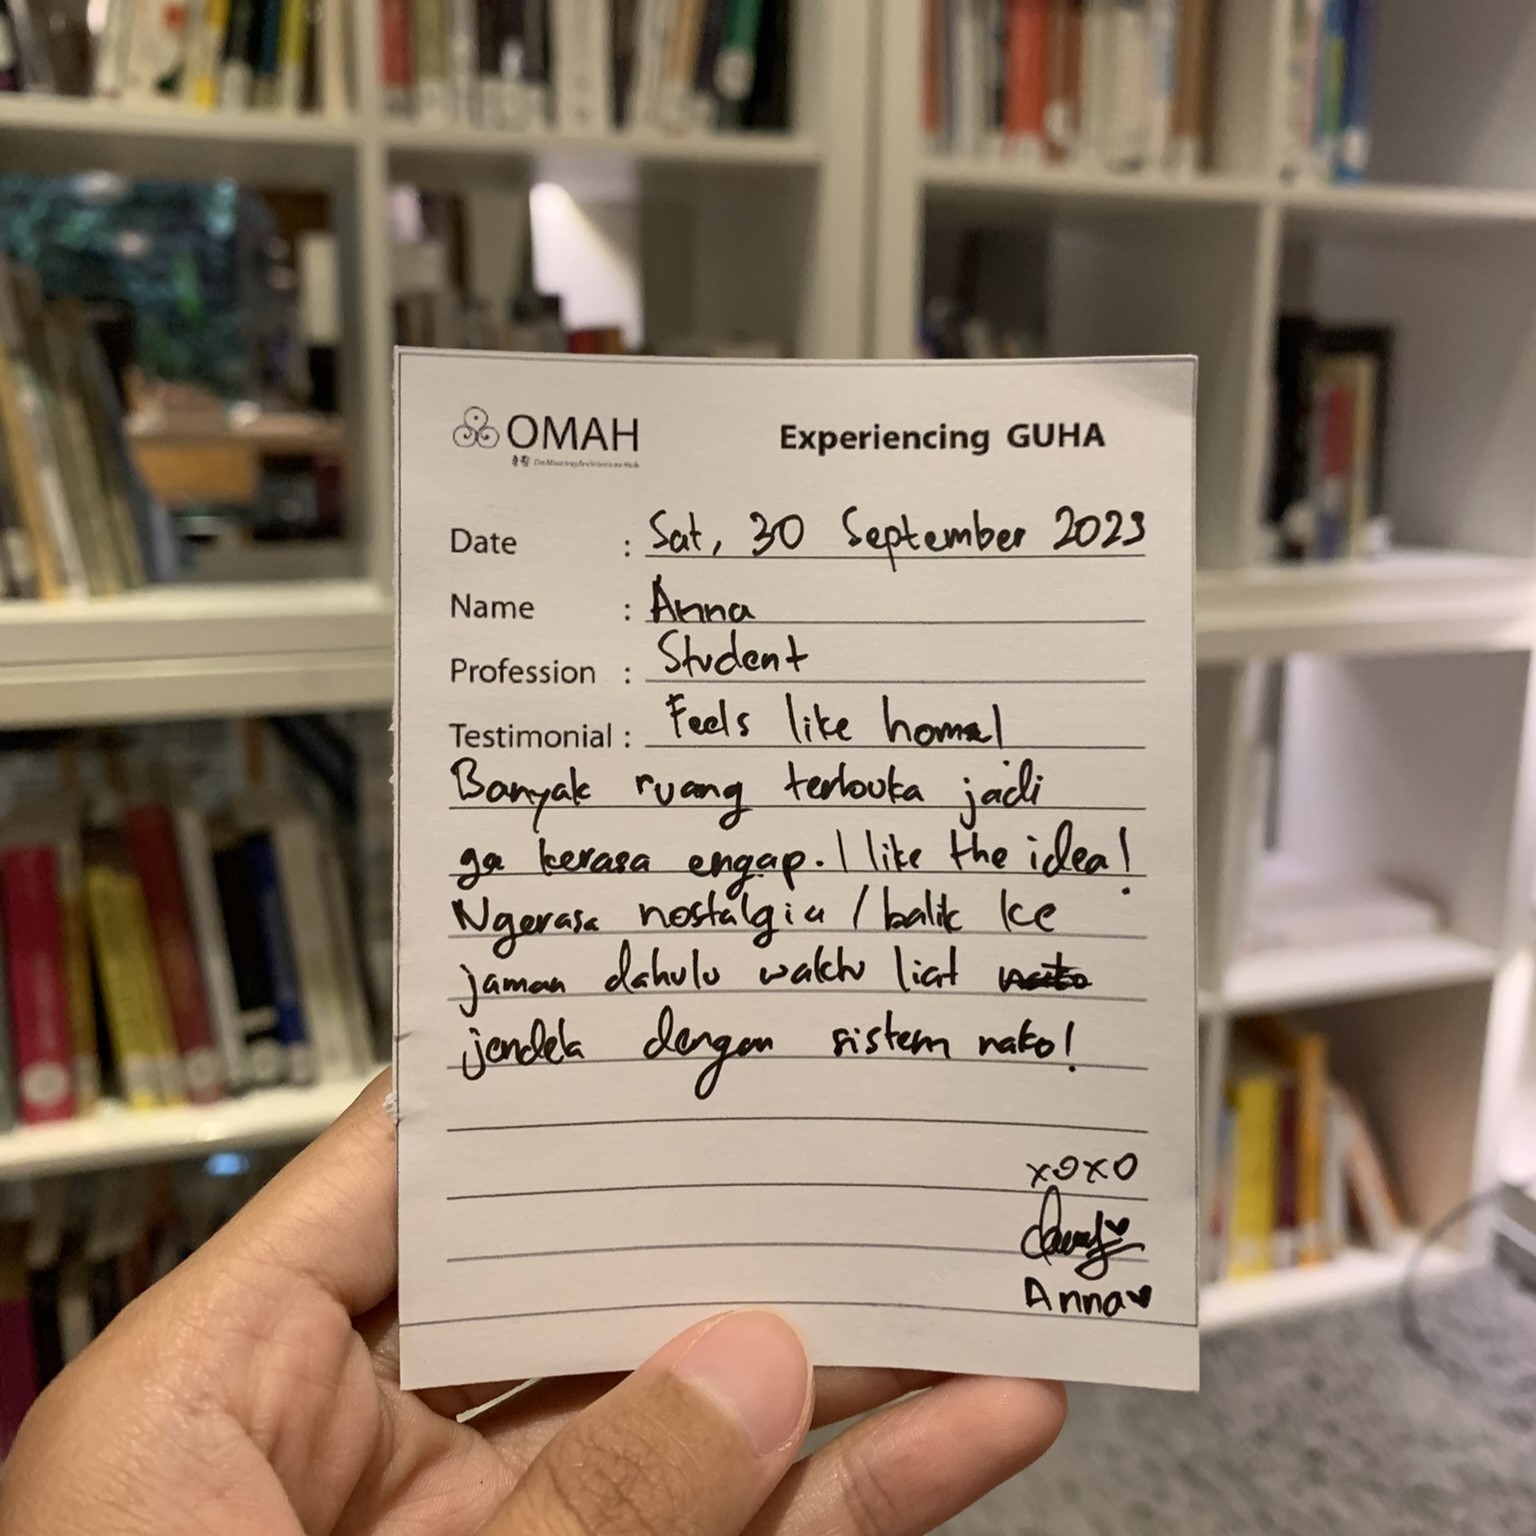 OMAH
Experiencing GUHA
Date : Sat, 30 September 2023
Name : Anna
Profession : Student
Testimonial : Feels like home!
Banyak ruang terbuka jadi
ga kerasa engap. I like the idea!
Ngerasa nostalgia / balik ke
jaman dahulu waktu liat
jendela dengan sistem nako!
xoxo
Anna